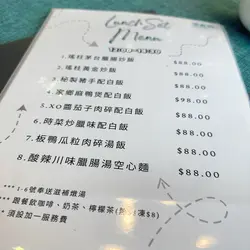 Lunch Set
Menu
1.瑤柱茅台臘腸炒飯 $88.00
2.瑤柱黃金炒飯 $88.00
3.秘製豬手配白飯 $88.00
4.家鄉麻鴨煲配白飯 $98.00
5.XO醬茄子肉碎配白飯 $88.00
6.時菜炒臘味配白飯 $88.00
7.板鴨瓜粒肉碎湯飯 $88.00
8.酸辣川味臘腸湯空心麵 $88.00
***1-6號奉送滋補燉湯
**跟餐飲咖啡、奶茶、檸檬茶(凍飲凍$8)
*須設加一服務費